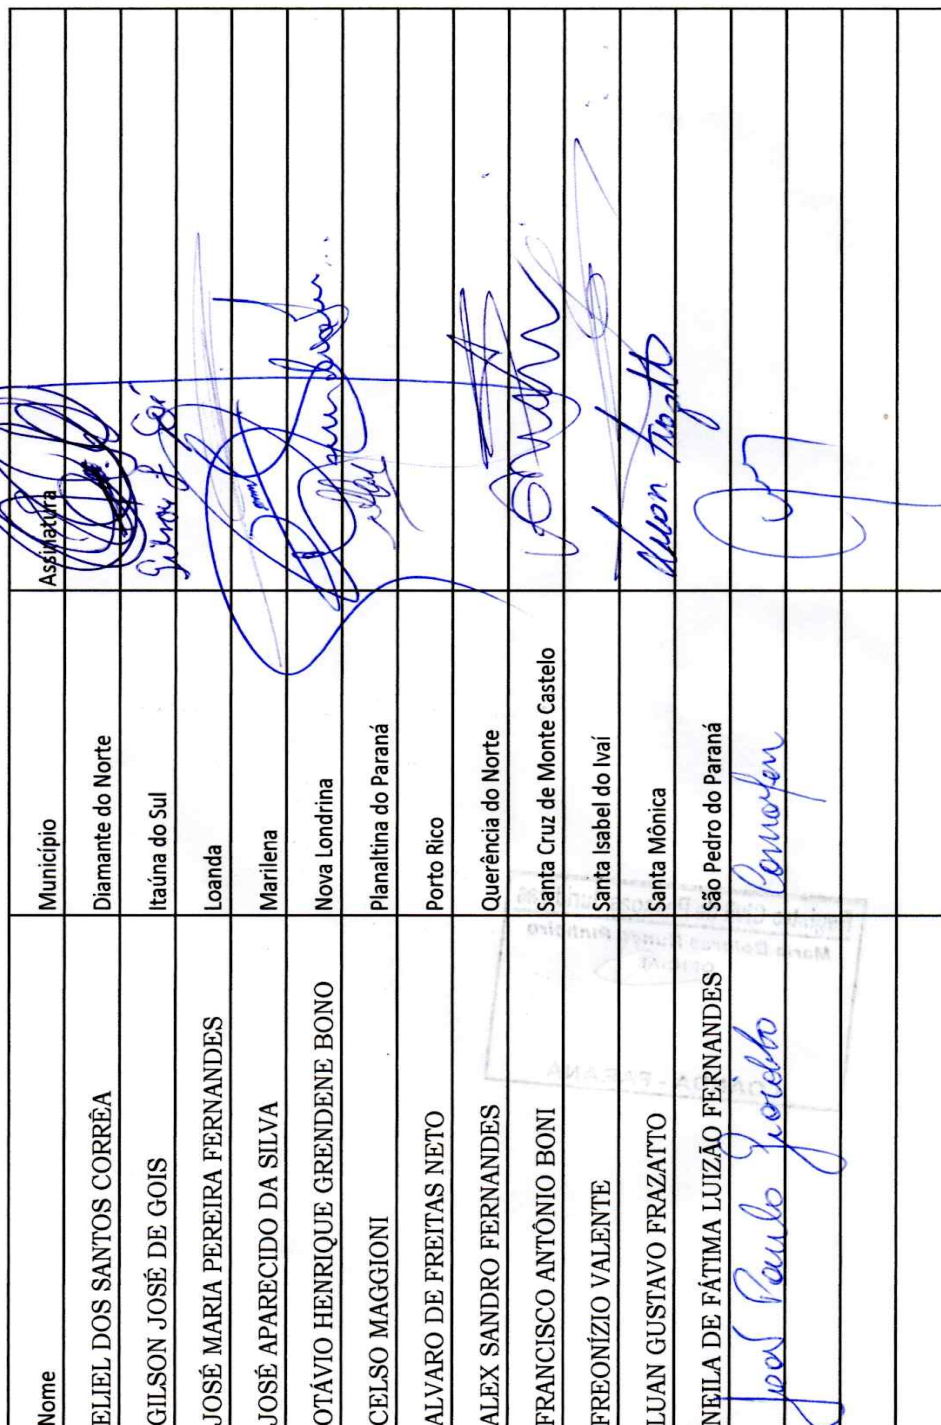 Nome Município Assinatura
ELIEL DOS SANTOS CORRÊA Diamante do Norte
GILSON JOSÉ DE GOIS Itaúna do Sul
JOSÉ MARIA PEREIRA FERNANDES Loanda
JOSÉ APARECIDO DA SILVA Marilena
OTÁVIO HENRIQUE GRENDENE BONO Nova Londrina
CELSO MAGGIONI Planaltina do Paraná
ALVARO DE FREITAS NETO Porto Rico
ALEX SANDRO FERNANDES Querência do Norte
FRANCISCO ANTÔNIO BONI Santa Cruz de Monte Castelo
FREONÍZIO VALENTE Santa Isabel do Ivaí
LUAN GUSTAVO FRAZATTO Santa Mônica
NEILA DE FÁTIMA LUIZÃO FERNANDES São Pedro do Paraná
Paulo